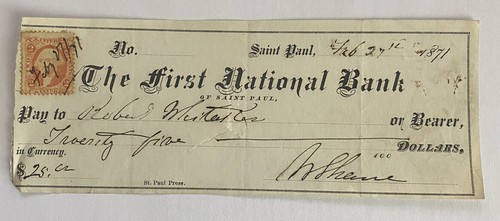 No. Saint Paul, Feb 27th 1871
The First National Bank
OF SAINT PAUL,
Pay to Robert Whitaker or Bearer,
Twenty five 100 DOLLARS,
in Currency.
$25.00
St. Paul Press.